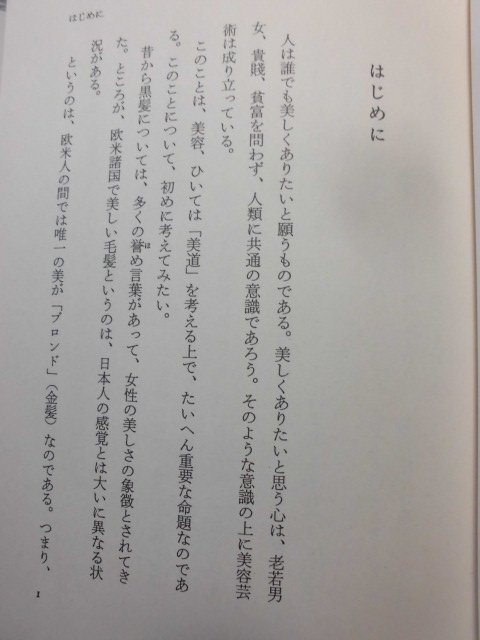 はじめに
はじめに
人は誰でも美しくありたいと願うものである。美しくありたいと思う心は、老若男
女、貴賤、貧富を問わず、人類に共通の意識であろう。そのような意識の上に美容芸
術は成り立っている。
このことは、美容、ひいては「美道」を考える上で、たいへん重要な命題なのであ
る。このことについて、初めに考えてみたい。
昔から黒髪については、多くの誉め言葉があって、女性の美しさの象徴とされてき
た。ところが、欧米諸国で美しい毛髪というのは、日本人の感覚とは大いに異なる状
況がある。
というのは、欧米人の間では唯一の美が「ブロンド」（金髪）なのである。つまり、
1